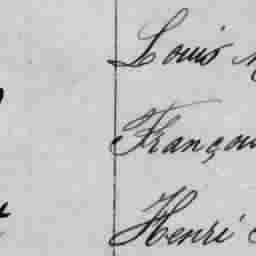 Louis
Françoi
Henri